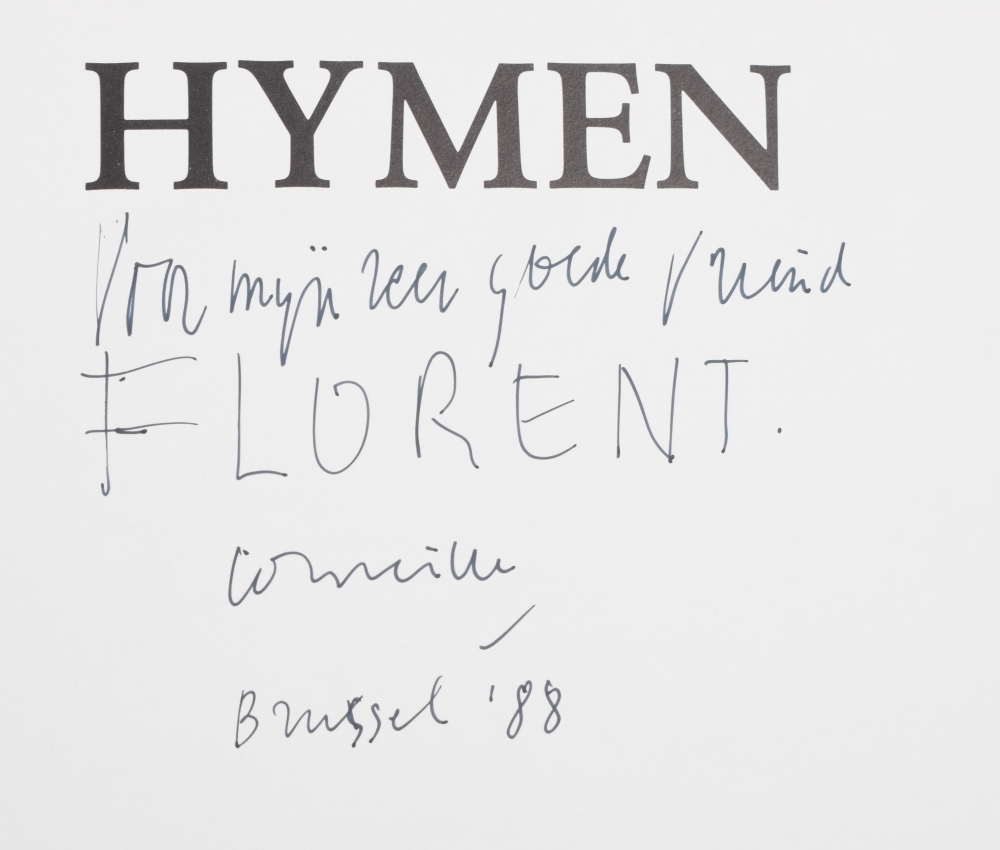 HYMEN
Voor mijn zeer goede vriend
FLORENT.
Corneille
Brussel '88